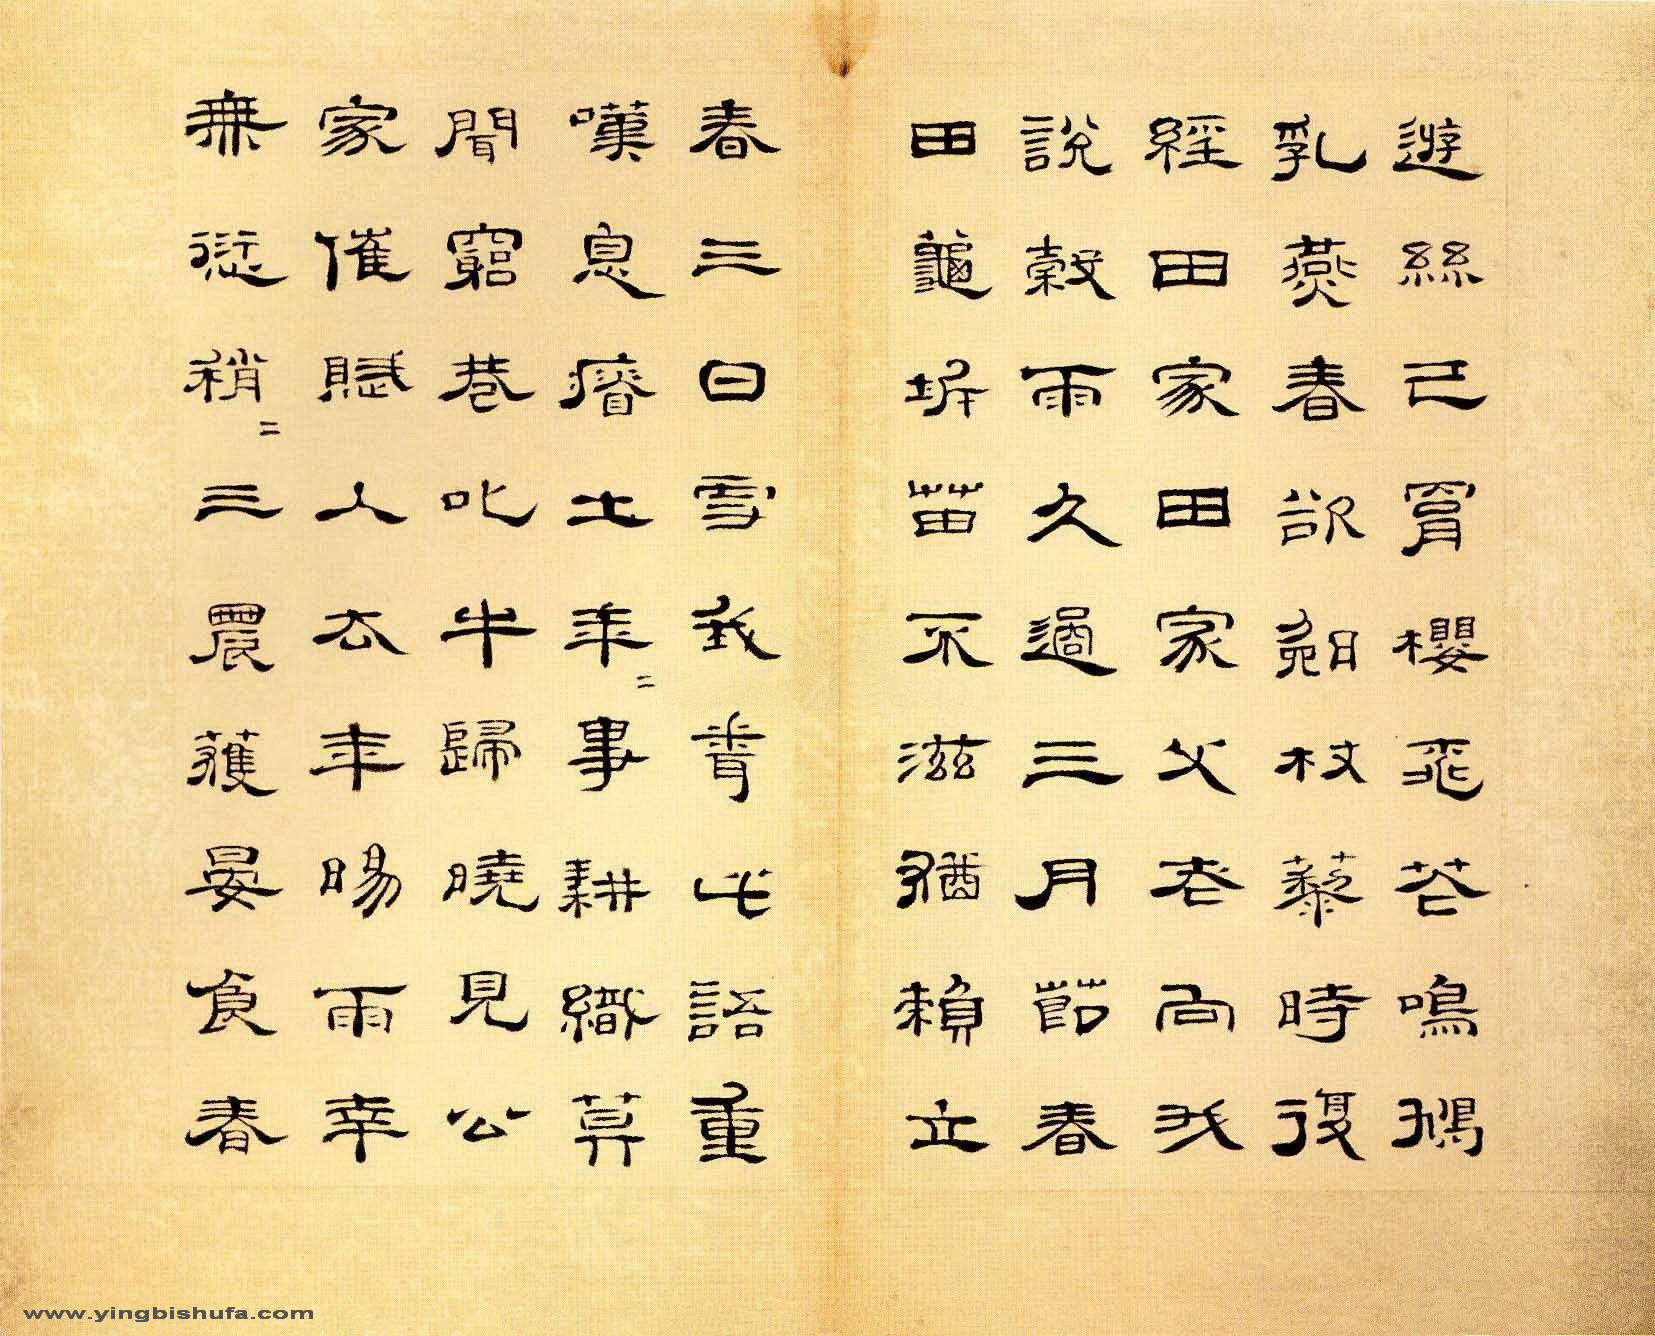 遊絲已罥櫻桃花鳴鳩
乳燕春欲晚杖藜時復
經田家田家父老向我
說穀雨久過三月節春
田龜坼苗不滋猶賴立
春三日雪我聞此語重
嘆息瘠土年〻事耕織莫
聞窮巷叱牛歸曉見公
家催賦入去年暘雨幸
無愆稍〻三農穫晏食春
www.yingbishufa.com